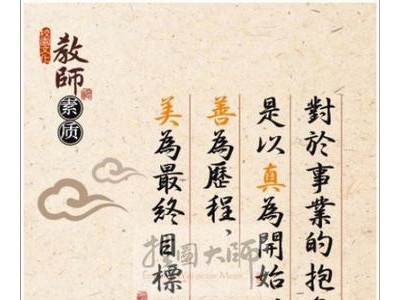 對於事業的抱
是以真為開始，
善為歷程，
美為最終目標
校園文化
教師
素质